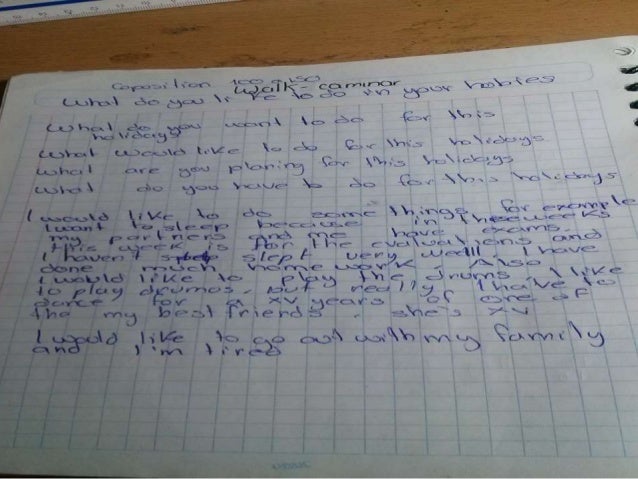 Coposition 100 a 150
Walk - caminar
What do you like to do in your hobies
What do you want to do for this
holidays
What would like to do for this holidays
what are you planing for this holidays
what do you have to do for this holidays
I would like to do some things for example
I want to sleep because in these weeks
my partners and me have exams.
This week is for the evaluations and
I haven't slept very well I have
done much home work. Also
I would like to play the drums, I like
to play drumos, but really I have to
dance for a XV years of one of
the my best friends, she's XV
I would like to go out with my family
and I'm tired